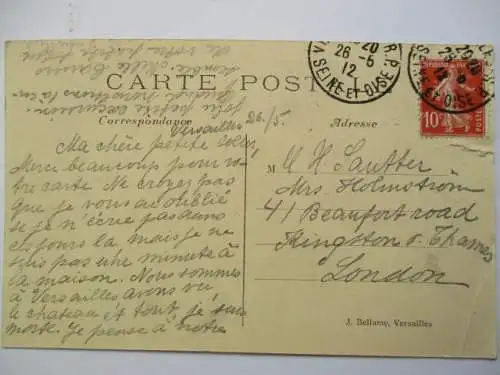 CARTE POSTALE
Correspondance
Adresse
Versailles 26/5.
Ma chère petite
Merci beaucoup pour vo-
tre carte. Ne croyez pas
que je vous ai oublié
si je n'écris pas dans
ces jours la mais je ne
suis pas une minute à
la maison. Nous sommes
à Versailles avons vu
le chateau et tout, je suis
morte. Je pense à notre
jolie petite excursion
de votre
M H Sautter
Mrs Holmström
41 Beaufort road
Kingston o. Thames
London
J. Bellamy, Versailles
20
26-5
12
SEINE-ET-OISE
R.P.
10c
POSTES